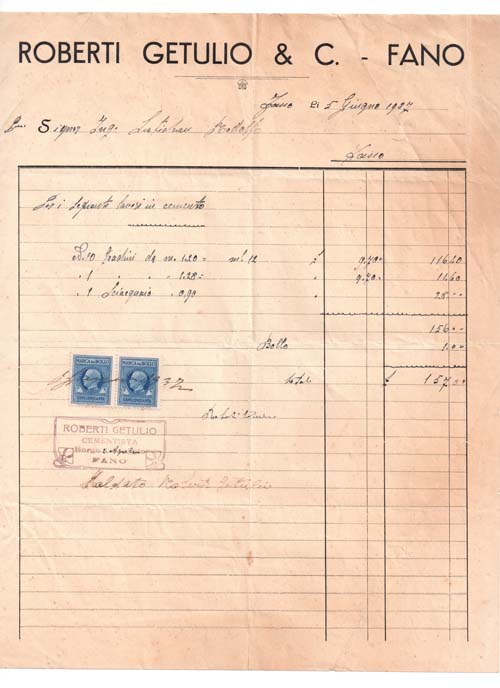 ROBERTI GETULIO & C. - FANO
Fano li 5 Giugno 1937
Signor Ing. Rodolfo
Fano
Per i seguenti lavori in cemento
N. 10 Gradini da m. 1.20 = ml. 12 £ 9.70 116.40
" 1 " " 1.28 = " 9.70 11.60
" 1 Sciacquaio 0.90 " 28.00
156.00
Bollo 1.00
total £ 157.00
MARCA DA BOLLO MARCA DA BOLLO
CENT. CINQUANTA CENT. CINQUANTA
ROBERTI GETULIO
CEMENTISTA
Borgo
FANO
Saldato Roberti Getulio